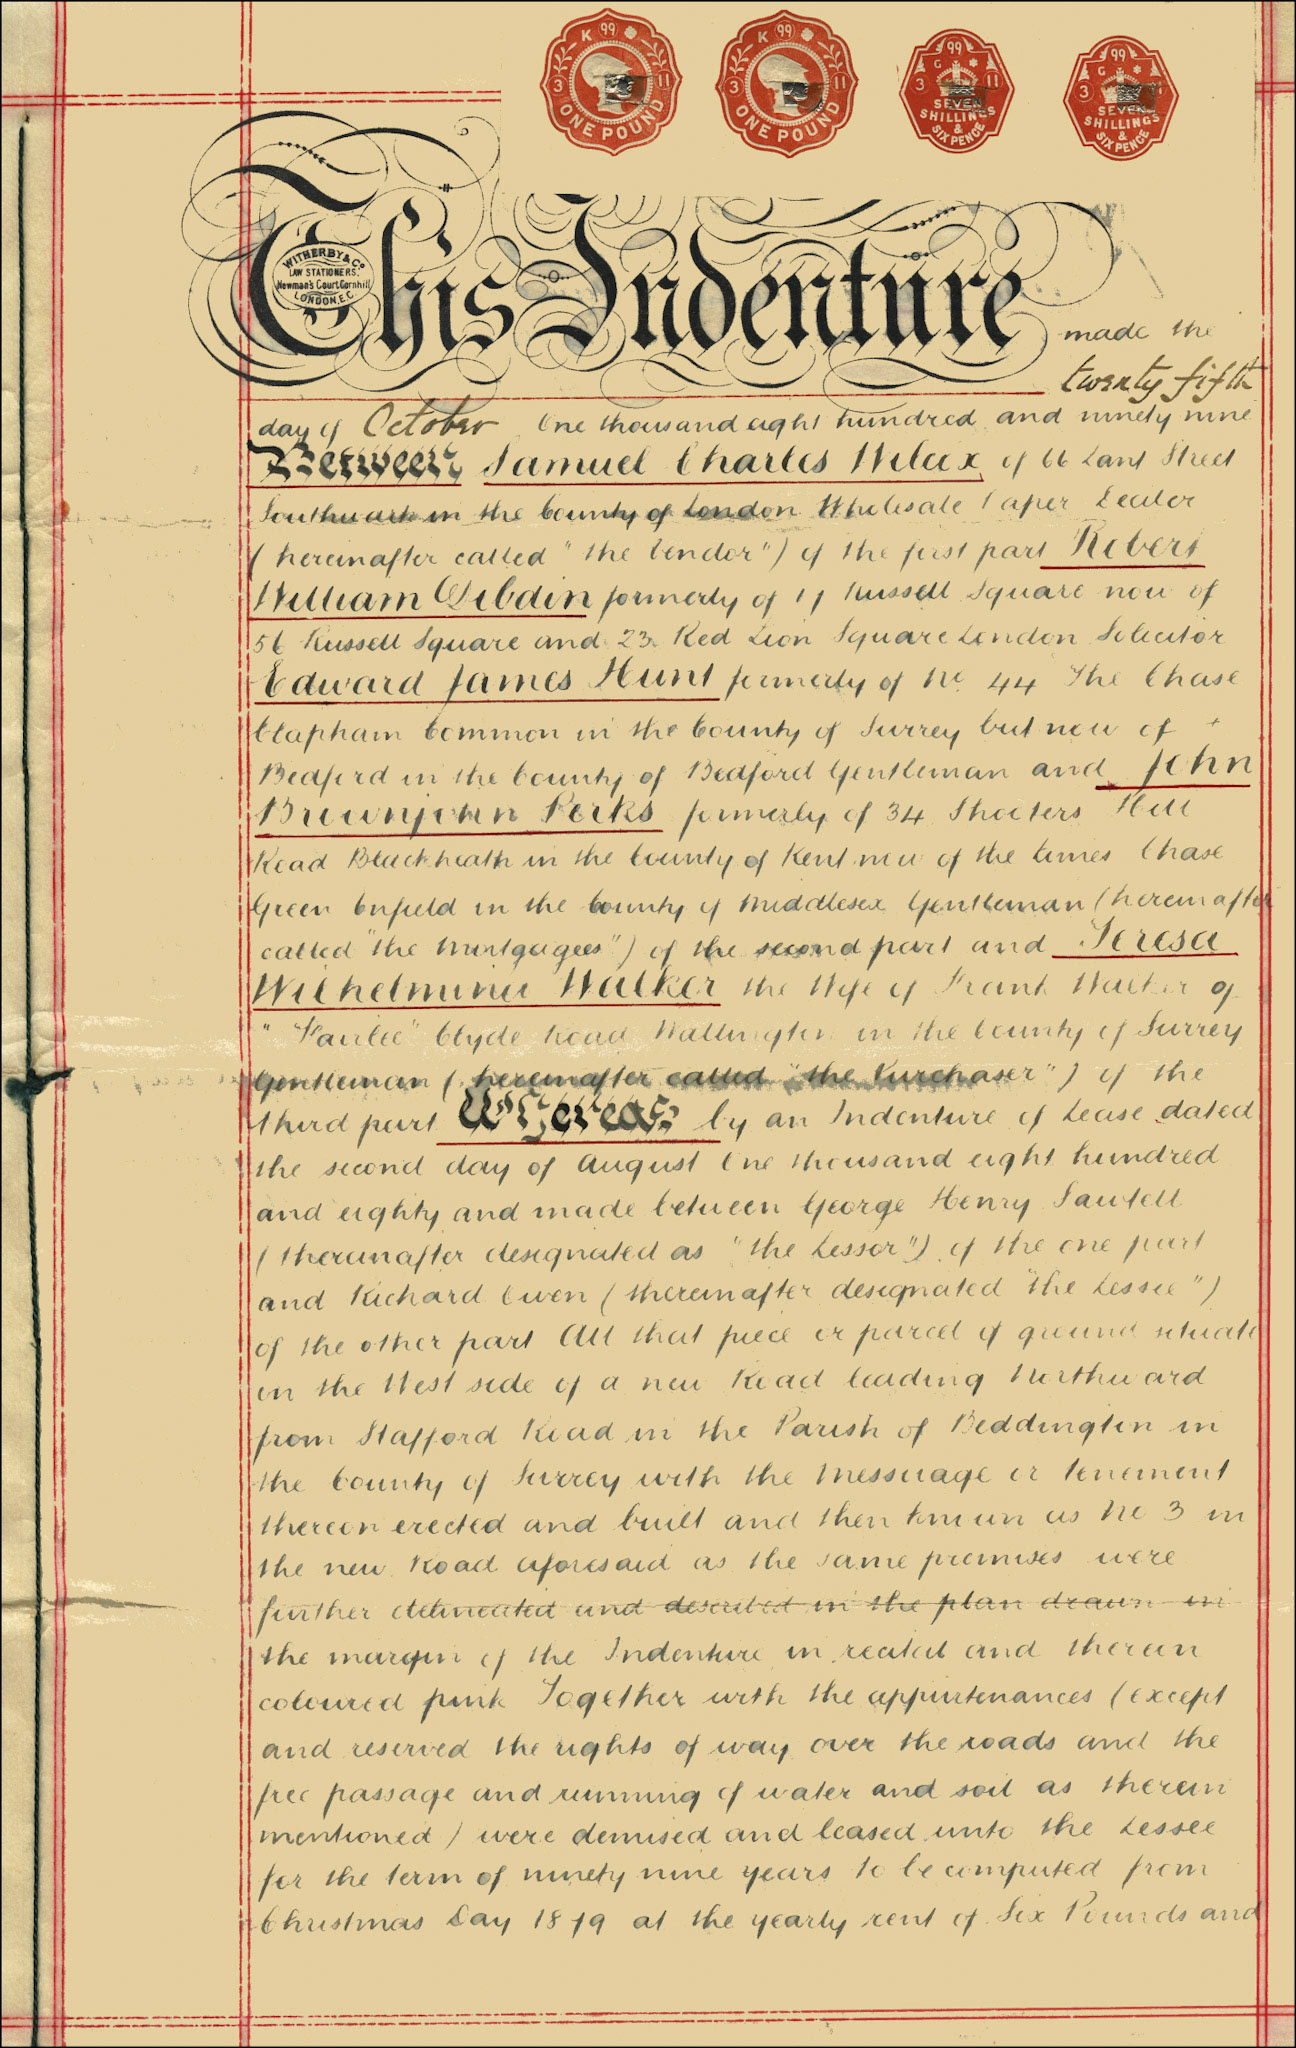 K 99
3 11
ONE POUND
K 99
3 11
ONE POUND
99
G
3 11
SEVEN
SHILLINGS
&
SIX PENCE
99
G
3
SEVEN
SHILLINGS
&
SIX PENCE
WITHERBY & Co
LAW STATIONERS.
Newman's Court Cornhill
LONDON, E.C.
This Indenture made the
twenty fifth
day of October One thousand eight hundred and ninety nine
Between Samuel Charles Wilcox of 66 Lant Street
Southwark in the County of London Wholesale Paper Dealer
(hereinafter called "the Vendor") of the first part Robert
William Dibdin formerly of 17 Russell Square now of
56 Russell Square and 23 Red Lion Square London Solicitor
Edward James Hunt formerly of No. 44 The Chase
Clapham Common in the County of Surrey but now of
Bedford in the County of Bedford Gentleman and John
Brownjohn Perks formerly of 34 Shooters Hill
Road Blackheath in the County of Kent now of the Chase
Green Enfield in the County of Middlesex Gentleman (hereinafter
called "the Mortgagees") of the second part and Teresa
Wilhelmina Walker the Wife of Frank Walker of
Clyde Road Wallington in the County of Surrey
Gentleman (hereinafter called "the Purchaser") of the
third part Whereas by an Indenture of Lease dated
the second day of August One thousand eight hundred
and eighty and made between George Henry Sawtell
(thereinafter designated as "the Lessor") of the one part
and Richard Owen (thereinafter designated "the Lessee")
of the other part All that piece or parcel of ground situate
on the West side of a new Road leading Northward
from Stafford Road in the Parish of Beddington in
the County of Surrey with the messuage or tenement
thereon erected and built and then known as No 3 in
the new Road aforesaid as the same premises were
further delineated and described in the plan drawn in
the margin of the Indenture in recital and therein
coloured pink Together with the appurtenances (except
and reserved the rights of way over the roads and the
free passage and running of water and soil as therein
mentioned) were demised and leased unto the Lessee
for the term of ninety nine years to be computed from
Christmas Day 1879 at the yearly rent of Six Pounds and